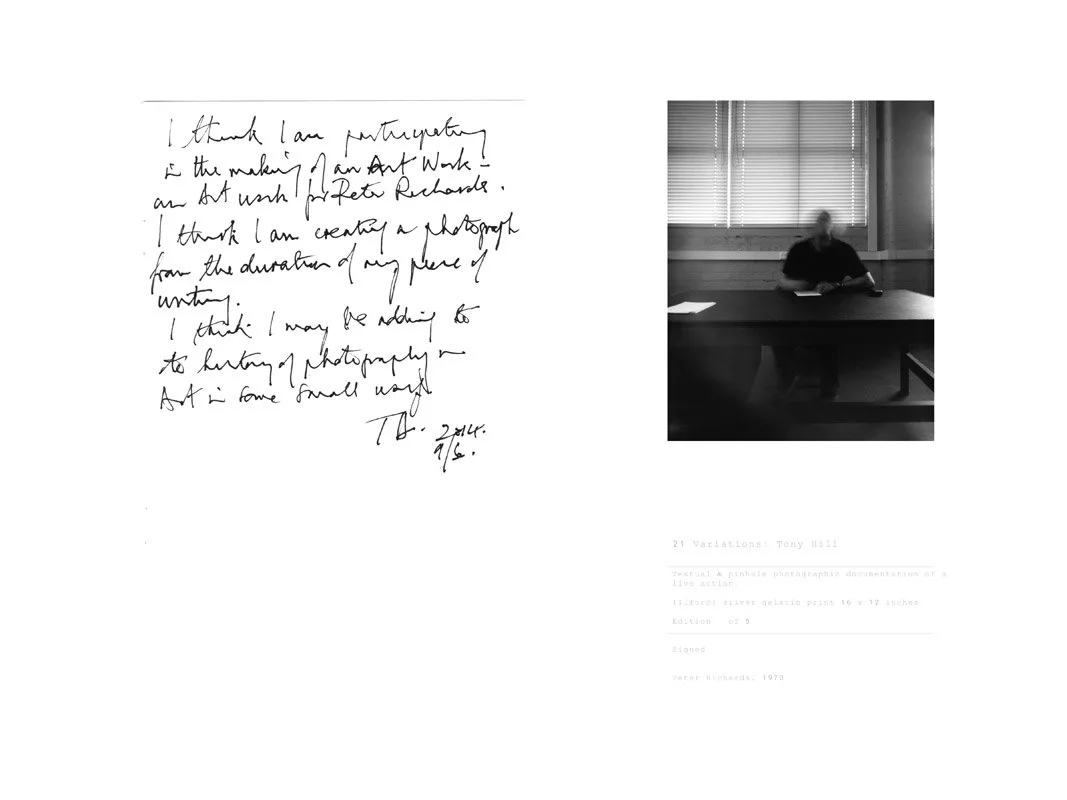 I think I am participating
in the making of an Art Work –
an Art work for Peter Richards.
I think I am creating a photograph
from the duration of my piece of
writing.
I think I may be adding to
to history of photography in
Art in some small way.
TH. 2014.
9/6.
21 Variations: Tony Hill
Textual & pinhole photographic documentation of a
live action
(Ilford) silver gelatin print 16 x 12 inches
Edition of 5
Signed
Peter Richards, 1970